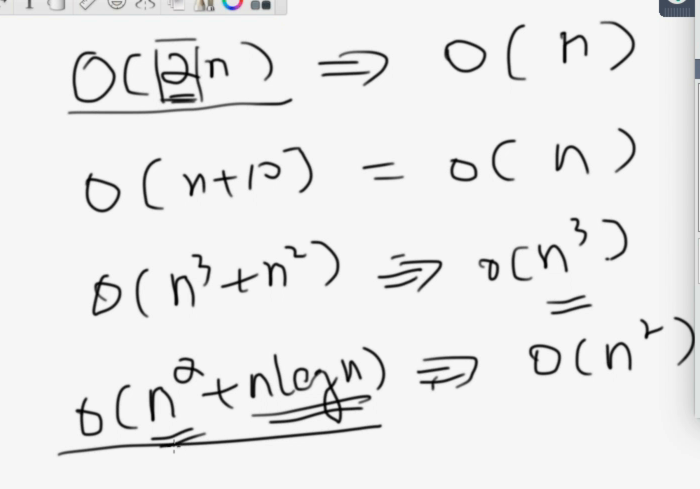 O(2n) ⇒ O(n)
O(n+10) = O(n)
O(n³+n²) ⇒ O(n³)
O(n²+nlogn) ⇒ O(n²)